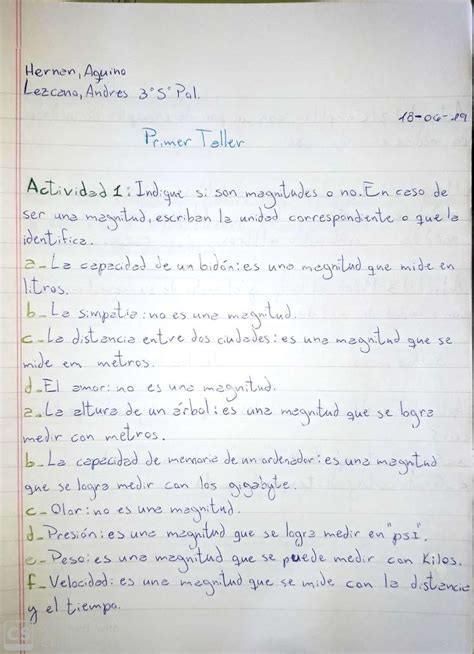 Hernan, Aquino
Lezcano, Andres 3°5° Pal.
18-06-19
Primer Taller
Actividad 1: Indique si son magnitudes o no. En caso de
ser una magnitud, escriban la unidad correspondiente o que la
identifica.
a_ La capacidad de un bidón: es una magnitud que mide en
litros.
b_ La simpatia: no es una magnitud.
c_ La distancia entre dos ciudades: es una magnitud que se
mide en metros.
d_ El amor: no es una magnitud.
a_ La altura de un árbol: es una magnitud que se logra
medir con metros.
b_ La capacidad de memoria de un ordenador: es una magnitud
que se logra medir con los gigabyte.
c_ Olor: no es una magnitud.
d_ Presión: es una magnitud que se logra medir en "psI".
e_ Peso: es una magnitud que se puede medir con Kilos.
f_ Velocidad: es una magnitud que se mide con la distancia
y el tiempo.
CS